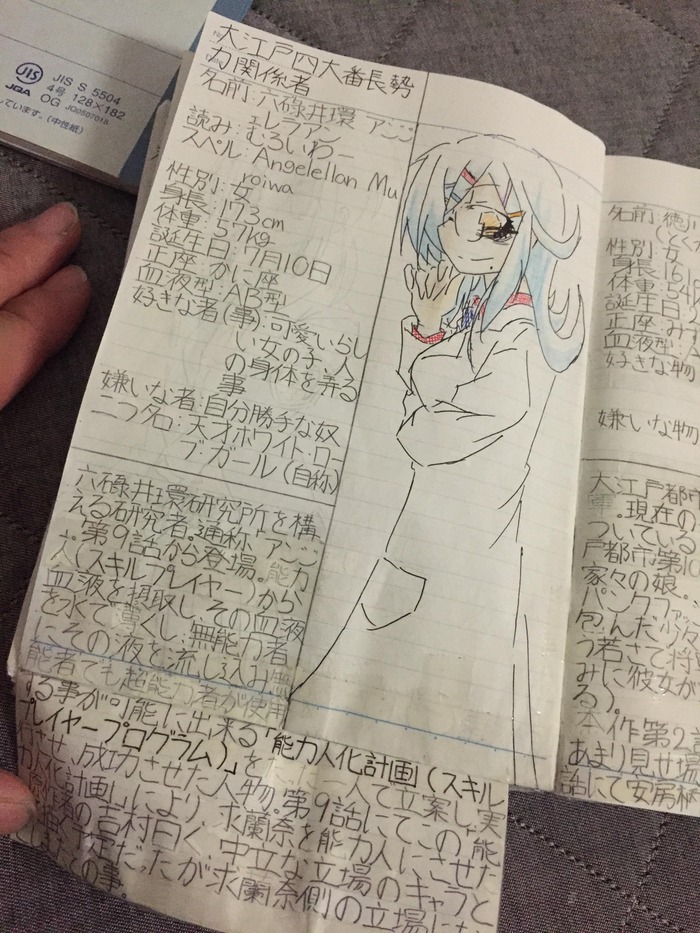 JIS
JQA
JIS S 5504
4号 128×182
OG JQ0507018
しています。(中性紙)
大江戸四大番長勢
力関係者
名前:六碌井環 アンジ
ェレラアン
読み:むろいわー
スペル:Angelellan Mu
roiwa
性別:女
身長:173cm
体重:57kg
誕生日:7月10日
正座:かに座
血液型:AB型
好きな者(事):可愛いらし
い女の子、人
の身体を弄る
事
嫌いな者:自分勝手な奴
ニつ名:天才ホワイト・ロー
ブ・ガール(自称)
六碌井環研究所を構
える研究者。通称、アンジ
。第9話から登場。能力
人(スキルプレイヤー)から
血液を摂取し、その血液
を水で薄くし、無能力者
にその液を流し込み無
能者でも超能力者が使用
する事が可能に出来る「能力人化計画(スキル
プレイヤープログラム)」を 一人で立案し、実
行させ、成功させた人物。第9話にてこの「能
力人化計画」により、求蘭奈を能力人にさせた
。原作者の吉村曰く、中立な立場のキャラと
だったが求蘭奈側の立場に
の事。
名前:徳川
性別:女
身長:161
体重:54
誕生日:
正座:みず
血液型:
好きな物
嫌いな物
大江戸都市
。現在の
ついている
戸都市第10
家々の娘。
パンクファッ
包んだ少
う若さで将
みに彼女が
る)。
本作第2話
あまり見せ場
話にて安房